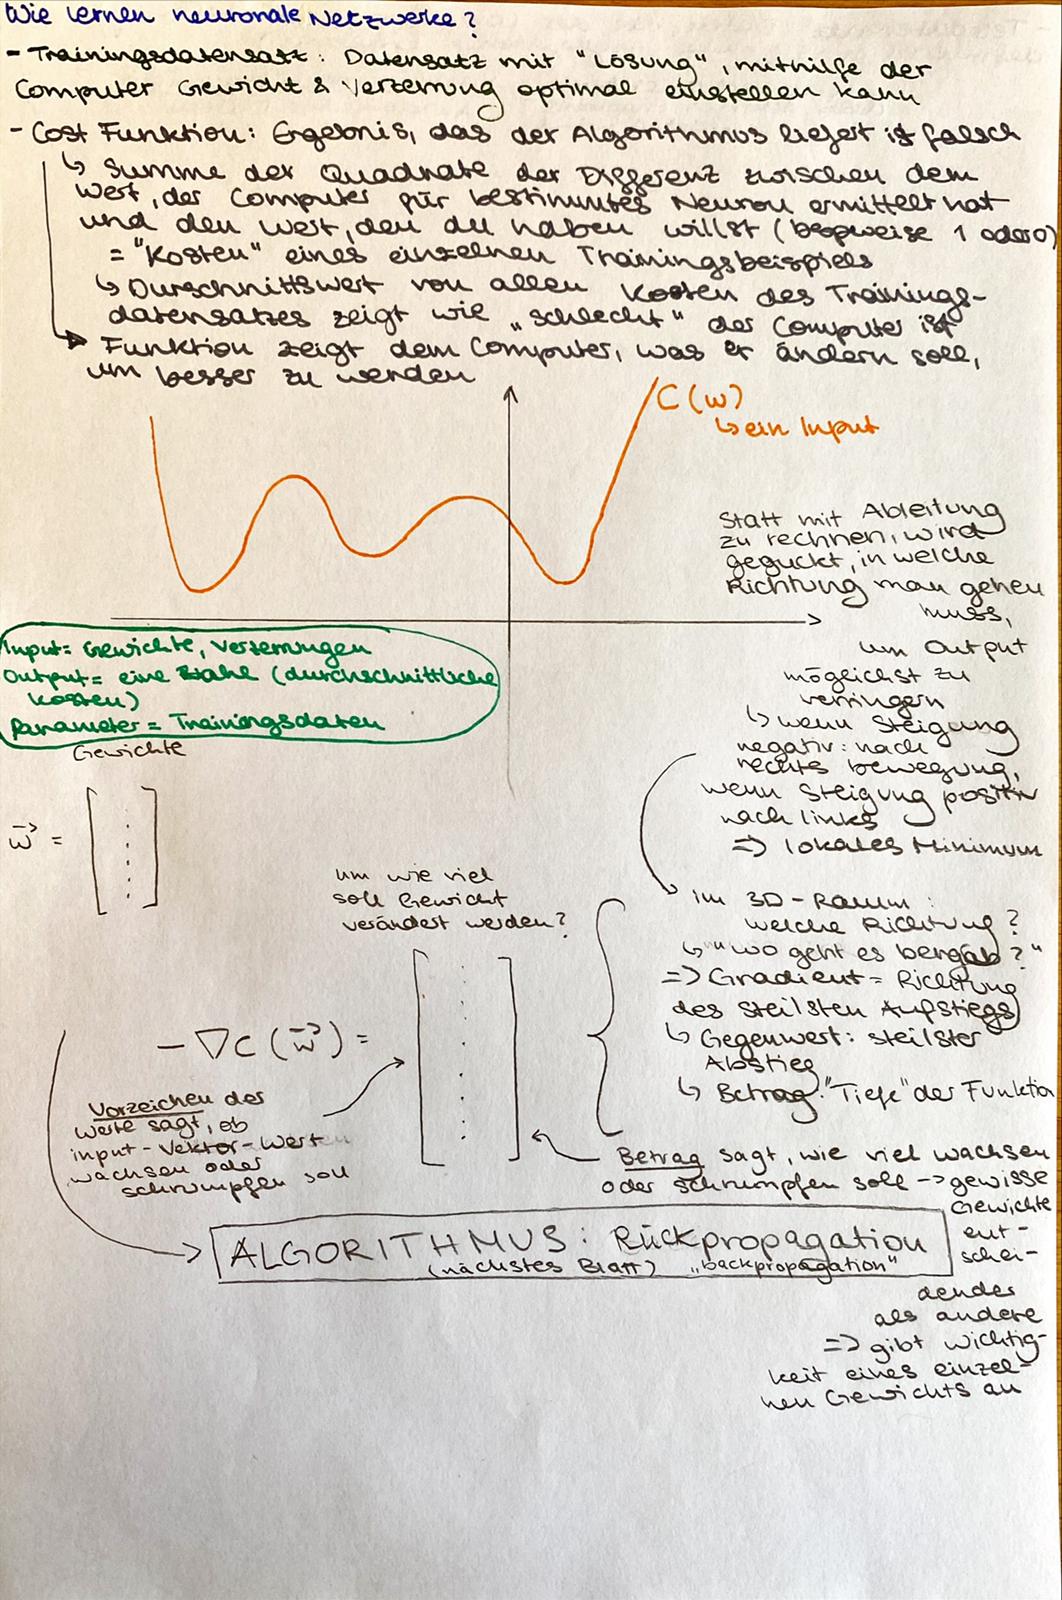 Wie lernen neuronale Netzwerke?
- Trainingsdatensatz: Datensatz mit "Lösung", mithilfe der
Computer Gewicht & Verzerrung optimal einstellen kann
- Cost Funktion: Ergebnis, das der Algorithmus liefert ist falsch
↳ Summe der Quadrate der Differenz zwischen dem
Wert, der Computer für bestimmtes Neuron ermittelt hat
und den Wert, den du haben willst (bspweise 1 oder 0)
= "Kosten" eines einzelnen Trainingsbeispiels
↳ Durschnittswert von allen Kosten des Trainings-
datensatzes zeigt wie "schlecht" der Computer ist
Funktion zeigt dem Computer, was er ändern soll,
um besser zu werden
C(w)
↳ ein Input
Statt mit Ableitung
zu rechnen, wird
geguckt, in welche
Richtung man gehen
muss,
um Output
möglichst zu
verringern
↳ wenn Steigung
negativ: nach
rechts bewegung,
wenn Steigung positiv
nach links
=> lokales Minimum
Input = Gewichte, Verzerrungen
Output = eine Zahl (durchschnittliche
Kosten)
Parameter = Trainingsdaten
Gewichte
w⃗ =
um wie viel
soll Gewicht
verändert werden?
im 3D-Raum:
welche Richtung?
↳ "wo geht es bergab?"
=> Gradient = Richtung
des steilsten Aufstiegs
↳ Gegenwert: steilster
Abstieg
↳ Betrag: "Tiefe" der Funktion
- ∇C (w⃗) =
Vorzeichen der
Werte sagt, ob
input-Vektor-Wert
wachsen oder
schrumpfen soll
Betrag sagt, wie viel wachsen
oder schrumpfen soll -> gewisse
Gewichte
ent-
schei-
dender
als andere
=> gibt wichtig-
keit eines einzel-
nen Gewichts an
ALGORITHMUS: Rückpropagation
(nächstes Blatt) "backpropagation"